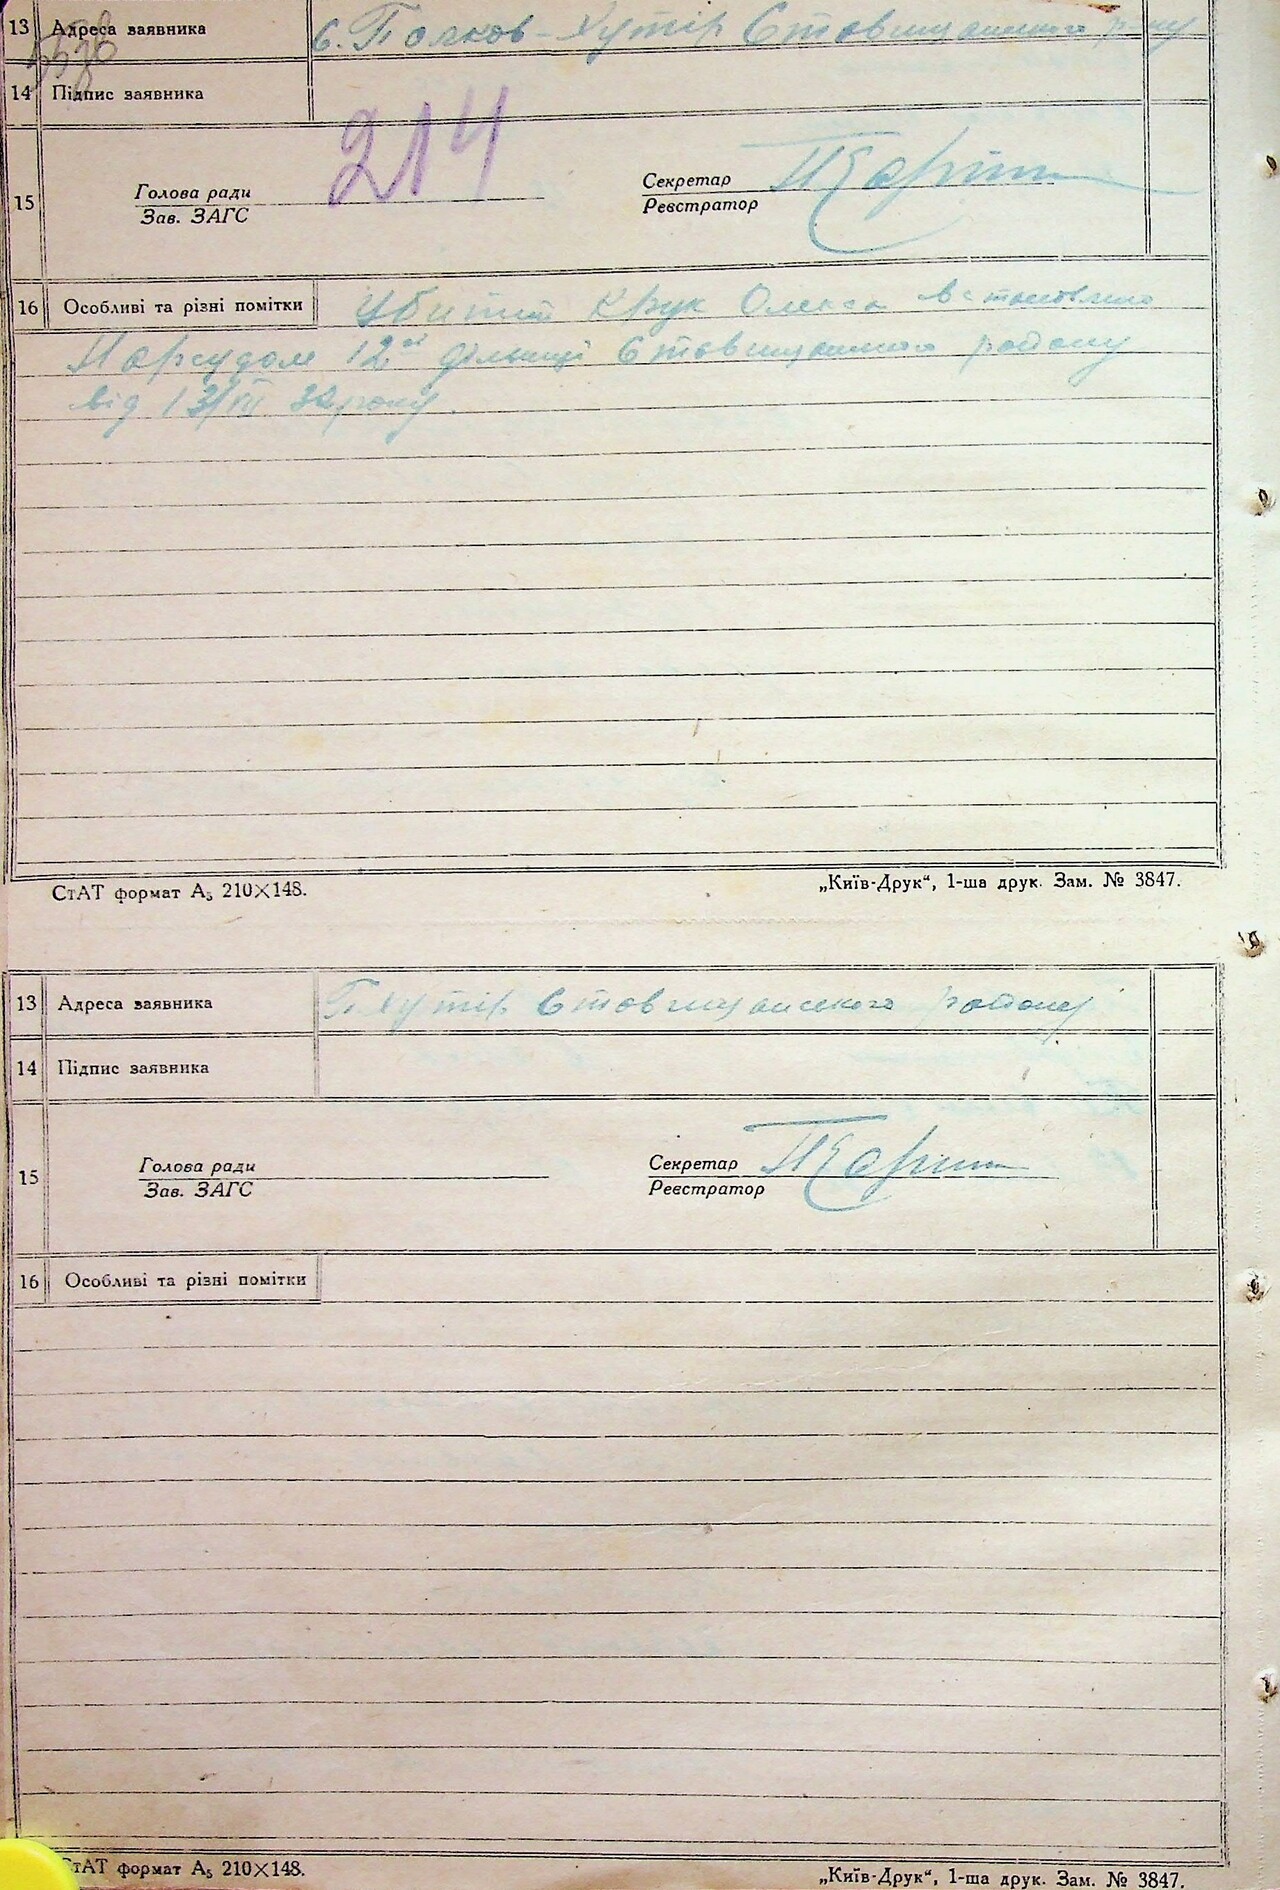 13 Адреса заявника с. Полков-Хутір Ставищанського р-ну
14 Підпис заявника
214
15 Голова ради Секретар
Зав. ЗАГС Реєстратор
16 Особливі та різні помітки Убитий Крук Олекса встановлено
Нарсудом 12ої дільниці Ставищанського району
від 13/VII 32 року.
СтАТ формат А₅ 210×148. „Київ-Друк“, 1-ша друк. Зам. № 3847.
13 Адреса заявника П Хутір Ставищанського району
14 Підпис заявника
15 Голова ради Секретар
Зав. ЗАГС Реєстратор
16 Особливі та різні помітки
СтАТ формат А₅ 210×148. „Київ-Друк“, 1-ша друк. Зам. № 3847.